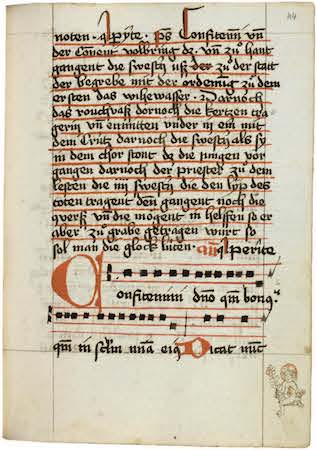 44
noten · Aperite · ps Confitemini vn̄
der Conuent volbring dz · vn̄ zů hant
gangent die swestͤn usz der zů der statt
der begrebe mit der ordenu͂g zů dem
ersten das wihewasser · Darnoch
das rouchvasz dornoch die kertzen tra
gerin vn̄ en mitten vnder in ein mit
dem Crütz darnoch die swestͤn als sy
in dem chor stont dz die jungen vor
gangen darnoch der priester zů dem
lesten die iiii swestͤn die den lyp des
toten tragent den gangent noch die
vn̄ die mogent in helffen so er
aber zů grabe getragen wurt so
sol man die glock lüten · Aperite
Confitemini dn̄o qm̄ bonus
qm̄ in sclm̄ mīa eiꝰ Dicat nūc